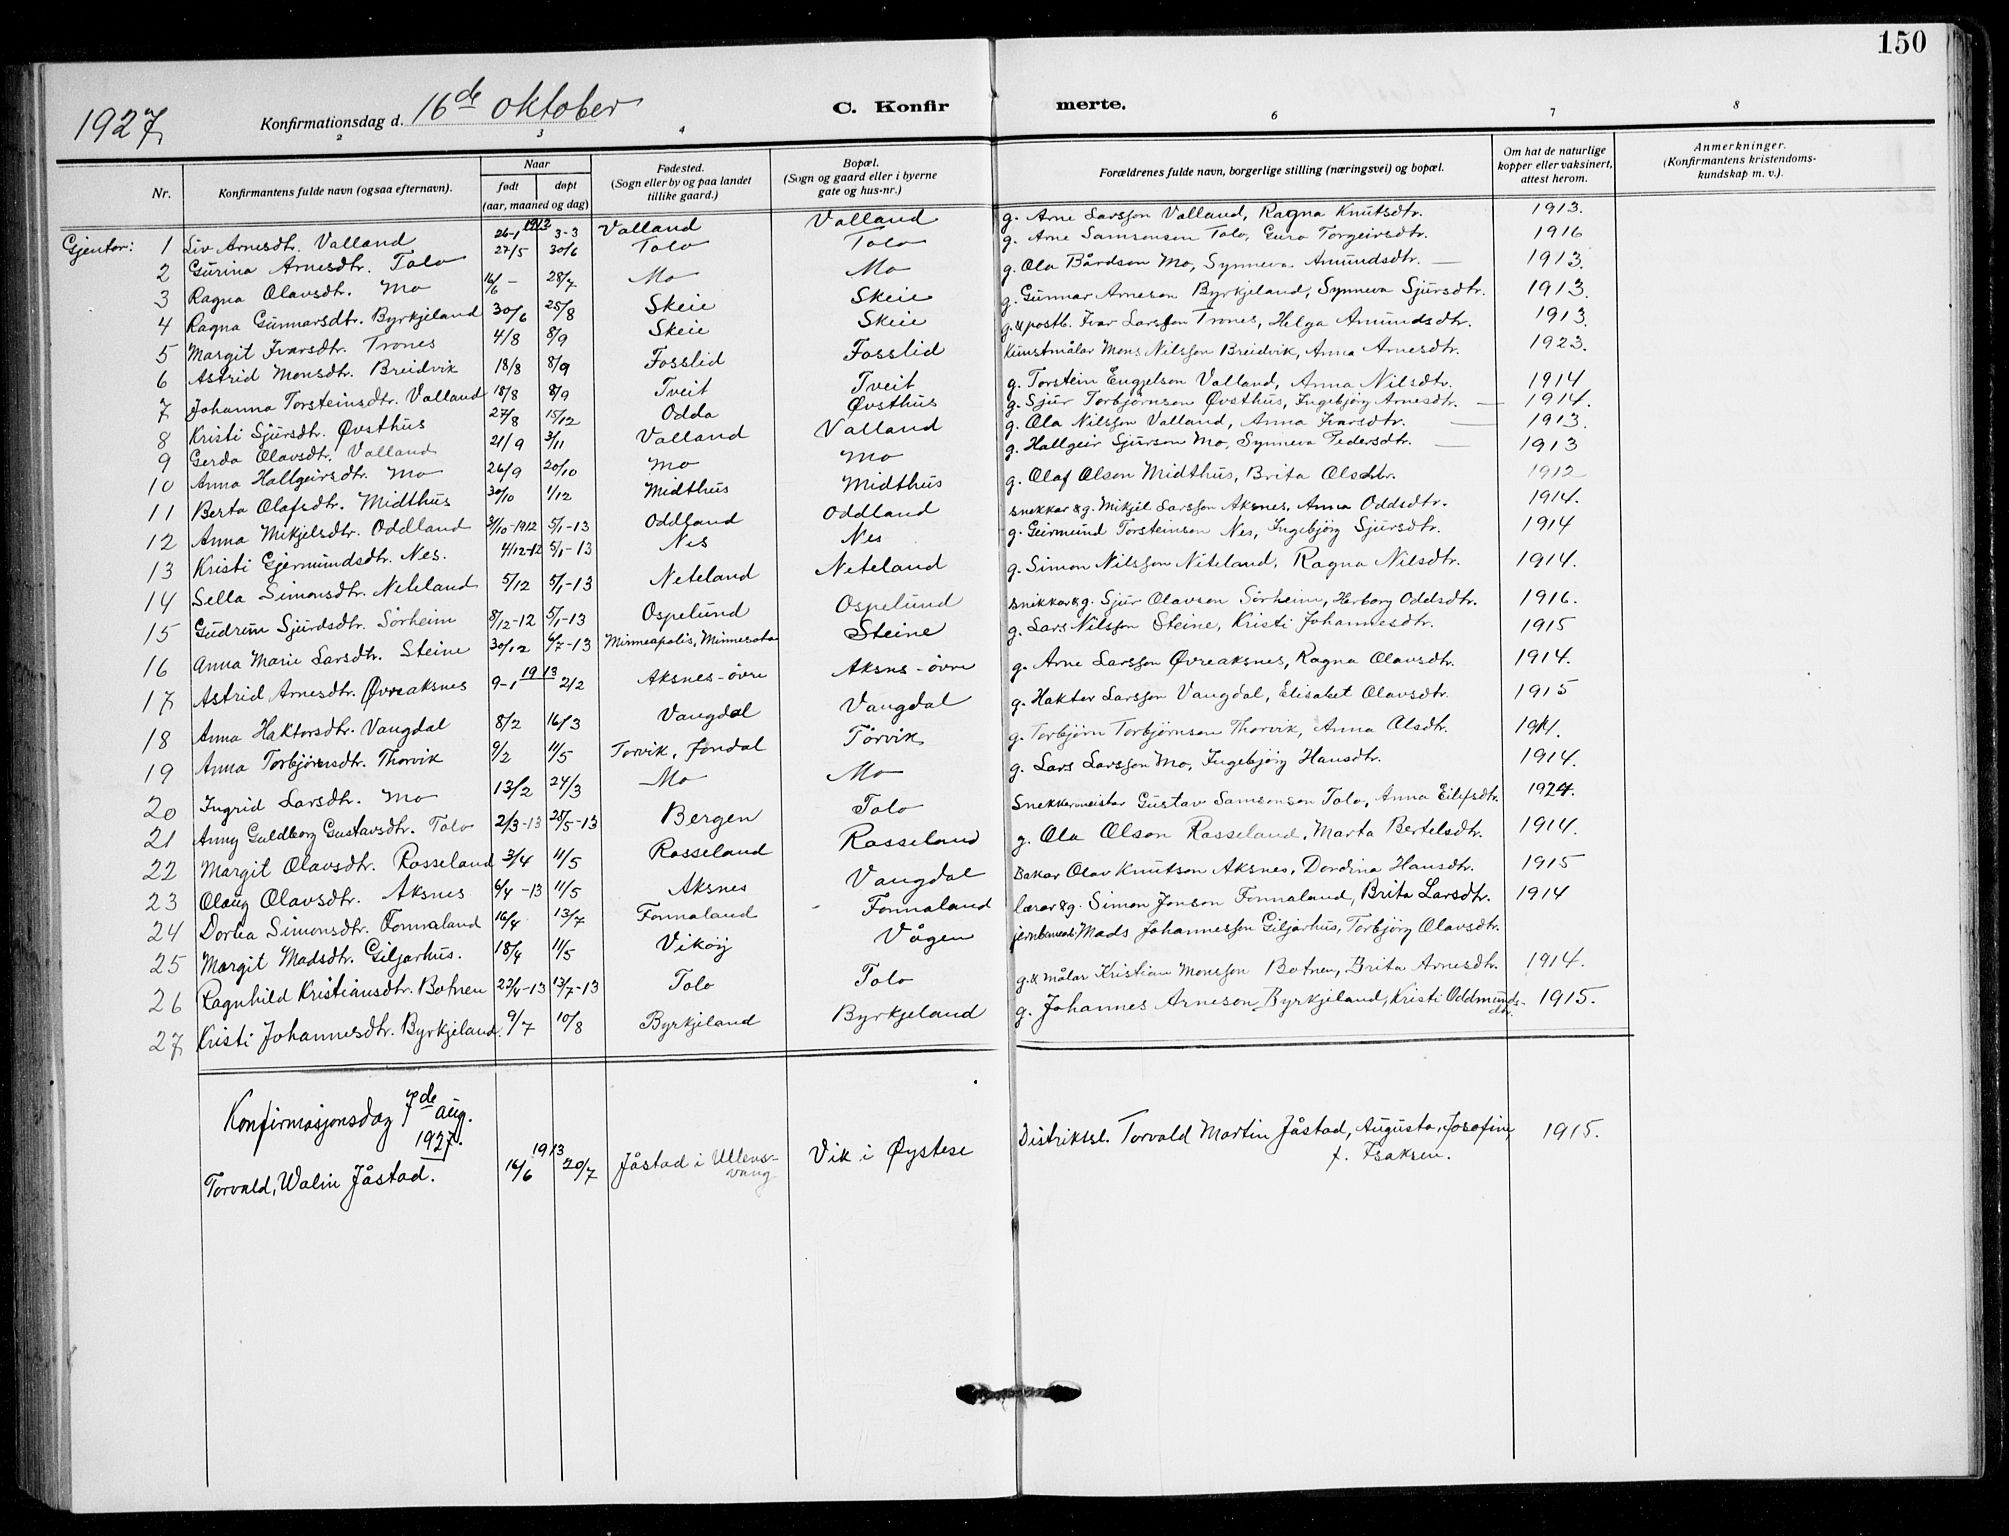 150
1927. Konfirmationsdag d. 16de oktober C. Konfirmerte.
2 3 4 6 7 8
Nr. Konfirmantens fulde navn (ogsaa efternavn). Naar født døpt (aar, maaned og dag) Fødested. (Sogn eller by og paa landet tillike gaard.) Bopæl. (Sogn og gaard eller i byerne gate og hus-nr.) Forældrenes fulde navn, borgerlige stilling (næringsvei) og bopæl. Om hat de naturlige kopper eller vaksinert, attest herom. Anmerkninger. (Konfirmantens kristendomskundskap m. v.).
Gjentor: 1 Liv Arnesdtr. Valland 1913 26-1 3-3 Valland Valland g. Arne Larsson Valland, Ragna Knutsdtr. 1913.
2 Gurina Arnesdtr. Tolo 27/5 30/6 Tolo Tolo g. Arne Samsonsen Tolo, Guro Torgeirsdtr. 1916
3 Ragna Olavsdtr. Mo 16/6 - 28/7 Mo Mo g. Ola Bårdson Mo, Synneva Amundsdtr. — 1913.
4 Ragna Gunnarsdtr. Byrkjeland 30/6 25/8 Skeie Skeie g. Gunnar Arneson Byrkjeland, Synneva Sjursdtr. 1913.
5 Margit Ivarsdtr. Trones 4/8 8/9 Skeie Skeie g. & postb. Ivar Larsson Trones, Helga Amundsdtr. 1913.
6 Astrid Monsdtr. Breidvik 18/8 8/9 Fosslid Fosslid Kunstmålar Mons Nilsson Breidvik, Anna Arnesdtr. 1923.
7 Johanna Torsteinsdtr. Valland 18/8 8/9 Tveit Tveit g. Torstein Engjelson Valland, Anna Nilsdtr. 1914
8 Kristi Sjursdtr. Øvsthus 27/8 15/12 Odda Øvsthus g. Sjur Torbjørnson Øvsthus, Ingebjørg Arnesdtr. — 1914.
9 Gerda Olavsdtr. Valland 21/9 3/11 Valland Valland g. Ola Nilsson Valland, Anna Ivarsdtr. — 1913.
10 Anna Hallgeirsdtr. Mo 26/9 20/10 Mo Mo g. Hallgeir Sjurson Mo, Synneva Pedersdtr. — 1913
11 Berta Olafsdtr. Midthus 30/10 1/12 Midthus Midthus g. Olaf Olson Midthus, Brita Olsdtr. 1912
12 Anna Mikjelsdtr. Oddland 3/10-1912 5/1-13 Oddland Oddland snekkar & g. Mikjel Larsson Aksnes, Anna Oddsdtr. 1914.
13 Kristi Gjermundsdtr. Nes. 4/12-12 5/1-13 Nes Nes g. Geirmund Torsteinson Nes, Ingebjörg Sjursdtr. 1914
14 Sella Simonsdtr. Neteland 5/12 5/1-13 Neteland Neteland g. Simon Nilsson Neteland, Ragna Nilsdtr. 1914.
15 Gudrun Sjurdsdtr. Sörheim 8/12-12 5/1-13 Ospelund Ospelund snikkar & g. Sjur Olavson Sörheim, Herborg Oddsdtr. 1916.
16 Anna Marie Larsdtr. Steine 30/12 6/7-13 Minneapolis, Minnesota Steine g. Lars Nilsson Steine, Kristi Johannesdtr. 1915
17 Astrid Arnesdtr. Øvreaksnes 1913 9-1 2/2 Aksnes-övre Aksns-övre g. Arne Larsson Øvreaksnes, Ragna Olavsdtr. 1914.
18 Anna Haktorsdtr. Vangdal 8/2 16/3 Vangdal Vangdal g. Haktor Larsson Vangdal, Elisabet Olavsdtr. 1915
19 Anna Torbjörnsdtr. Thorvik 9/2 11/5 Torvik, Jondal Törvik g. Torbjörn Torbjörnson Thorvik, Anna Olsdtr. 1914.
20 Ingrid Larsdtr. Mo 13/2 24/3 Mo Mo g. Lars Larsson Mo, Ingebjörg Hansdtr. 1914.
21 Anny Guldborg Gustavsdtr. Tolo 2/3-13 25/5-13 Bergen Tolo Snekkermeister Gustav Samsonson Tolo, Anna Eilifsdtr. 1924.
22 Margit Olavsdtr. Rosseland 3/4 11/5 Rosseland Rosseland g. Ola Olson Rosseland, Marta Bertelsdtr. 1914.
23 Olaug Olavsdtr. Aksnes 6/4-13 11/5 Aksnes Vangdal Bakar Olav Knutson Aksnes, Dordina Hansdtr. 1915
24 Dortea Simonsdtr. Fonnaland 16/4 13/7 Fonnaland Fonnaland lærar & g. Simon Jonson Fonnaland, Brita Larsdtr. 1914
25 Margit Madsdtr. Giljarhus. 18/4 11/5 Vikøy Vågen Mads Johannesson Giljarhus, Torbjörg Olavsdtr.
26 Ragnhild Kristiansdtr. Botnen 22/4-13 13/7-13 Tolo Tolo g. & målar Kristian Monsson Botnen, Brita Arnesdtr. 1914.
27 Kristi Johannesdtr. Byrkjeland. 9/7 10/8 Byrkjeland Byrkjeland g. Johannes Arneson Byrkjeland, Kristi Oddmunds- dtr. 1915.
Konfirmasjonsdag 7de aug.
1927.
Torvald, Walin Jåstad. 1913 16/6 20/7 Jåstad i Ullens- vang Vik i Øystese Distriktsl. Torvald Martin Jåstad, Augusta, Josefine, f. Isaksen. 1915.